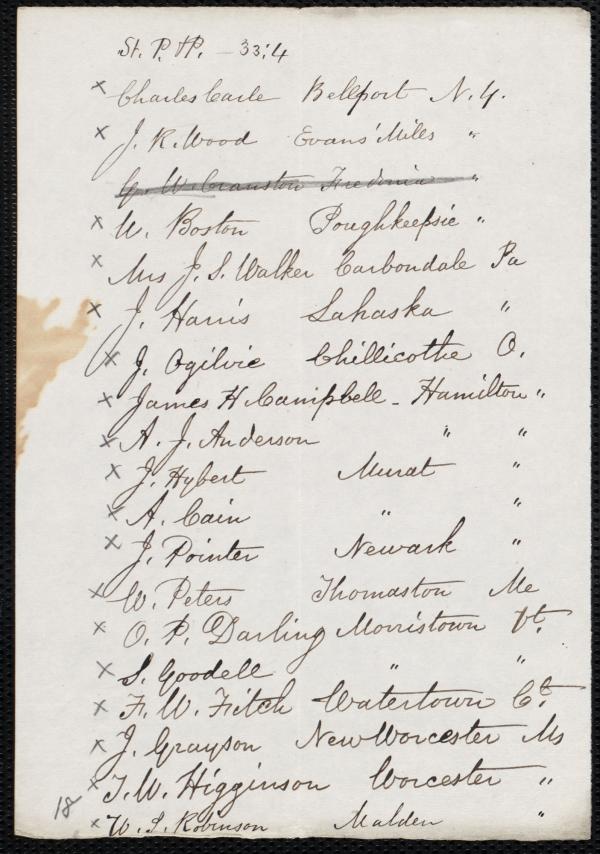 St. P. & P. — 33:4
x Charles Carle Bellport N.Y.
x J. R. Wood Evans' Miles "
G. W. Cranston Fredonia "
x W. Boston Poughkeepsie "
x Mrs J. S. Walker Carbondale Pa
x J. Harris Lahaska "
x J. Ogilvie Chillicothe O.
x James H Campbell - Hamilton "
x A. J. Anderson " "
x J. Hybert Murat "
x A. Cain " "
x J. Pointer Newark "
x W. Peters Thomaston Me
x O. P. Darling Morristown Vt.
x S. Goodell " "
x F. W. Fitch Watertown Ct.
x J. Grayson New Worcester Ms
x T. W. Higginson Worcester "
18
x W. S. Robinson Malden "